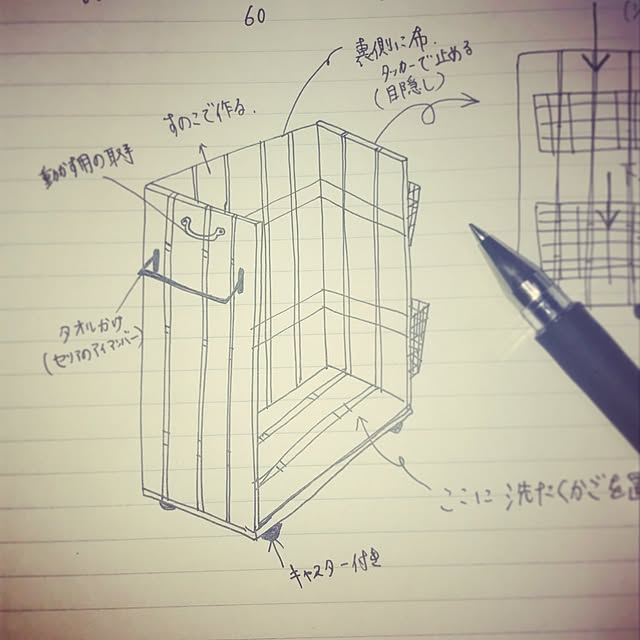 60
裏側に布.
タッカーで止める
(目隠し)
すのこで作る.
動かす用の取手
タオルかけ
(セリアのアイアンバー)
ここに洗たくかごを置
キャスター付き